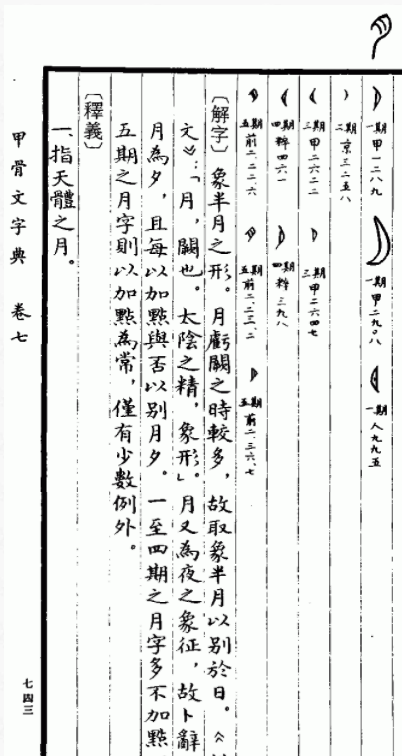 一期 甲一二八九 一期 甲二九〇八 一期 人九九五
二期 京三二五八
三期 甲二六二二 三期 甲二六四七
四期 粹四六一 四期 粹三九八
五期 前二.二.六 五期 前二.二三.二 五期 前二.三六.七
〔解字〕象半月之形。月虧闕之時較多，故取象半月以別於日。《
文》：「月，闕也。太陰之精，象形。」月又為夜之象征，故卜辭
月為夕，且每以加點與否以別月夕。一至四期之月字多不加點
五期之月字則以加點為常，僅有少數例外。
〔釋義〕
一、指天體之月。
甲骨文字典 卷七
七四三